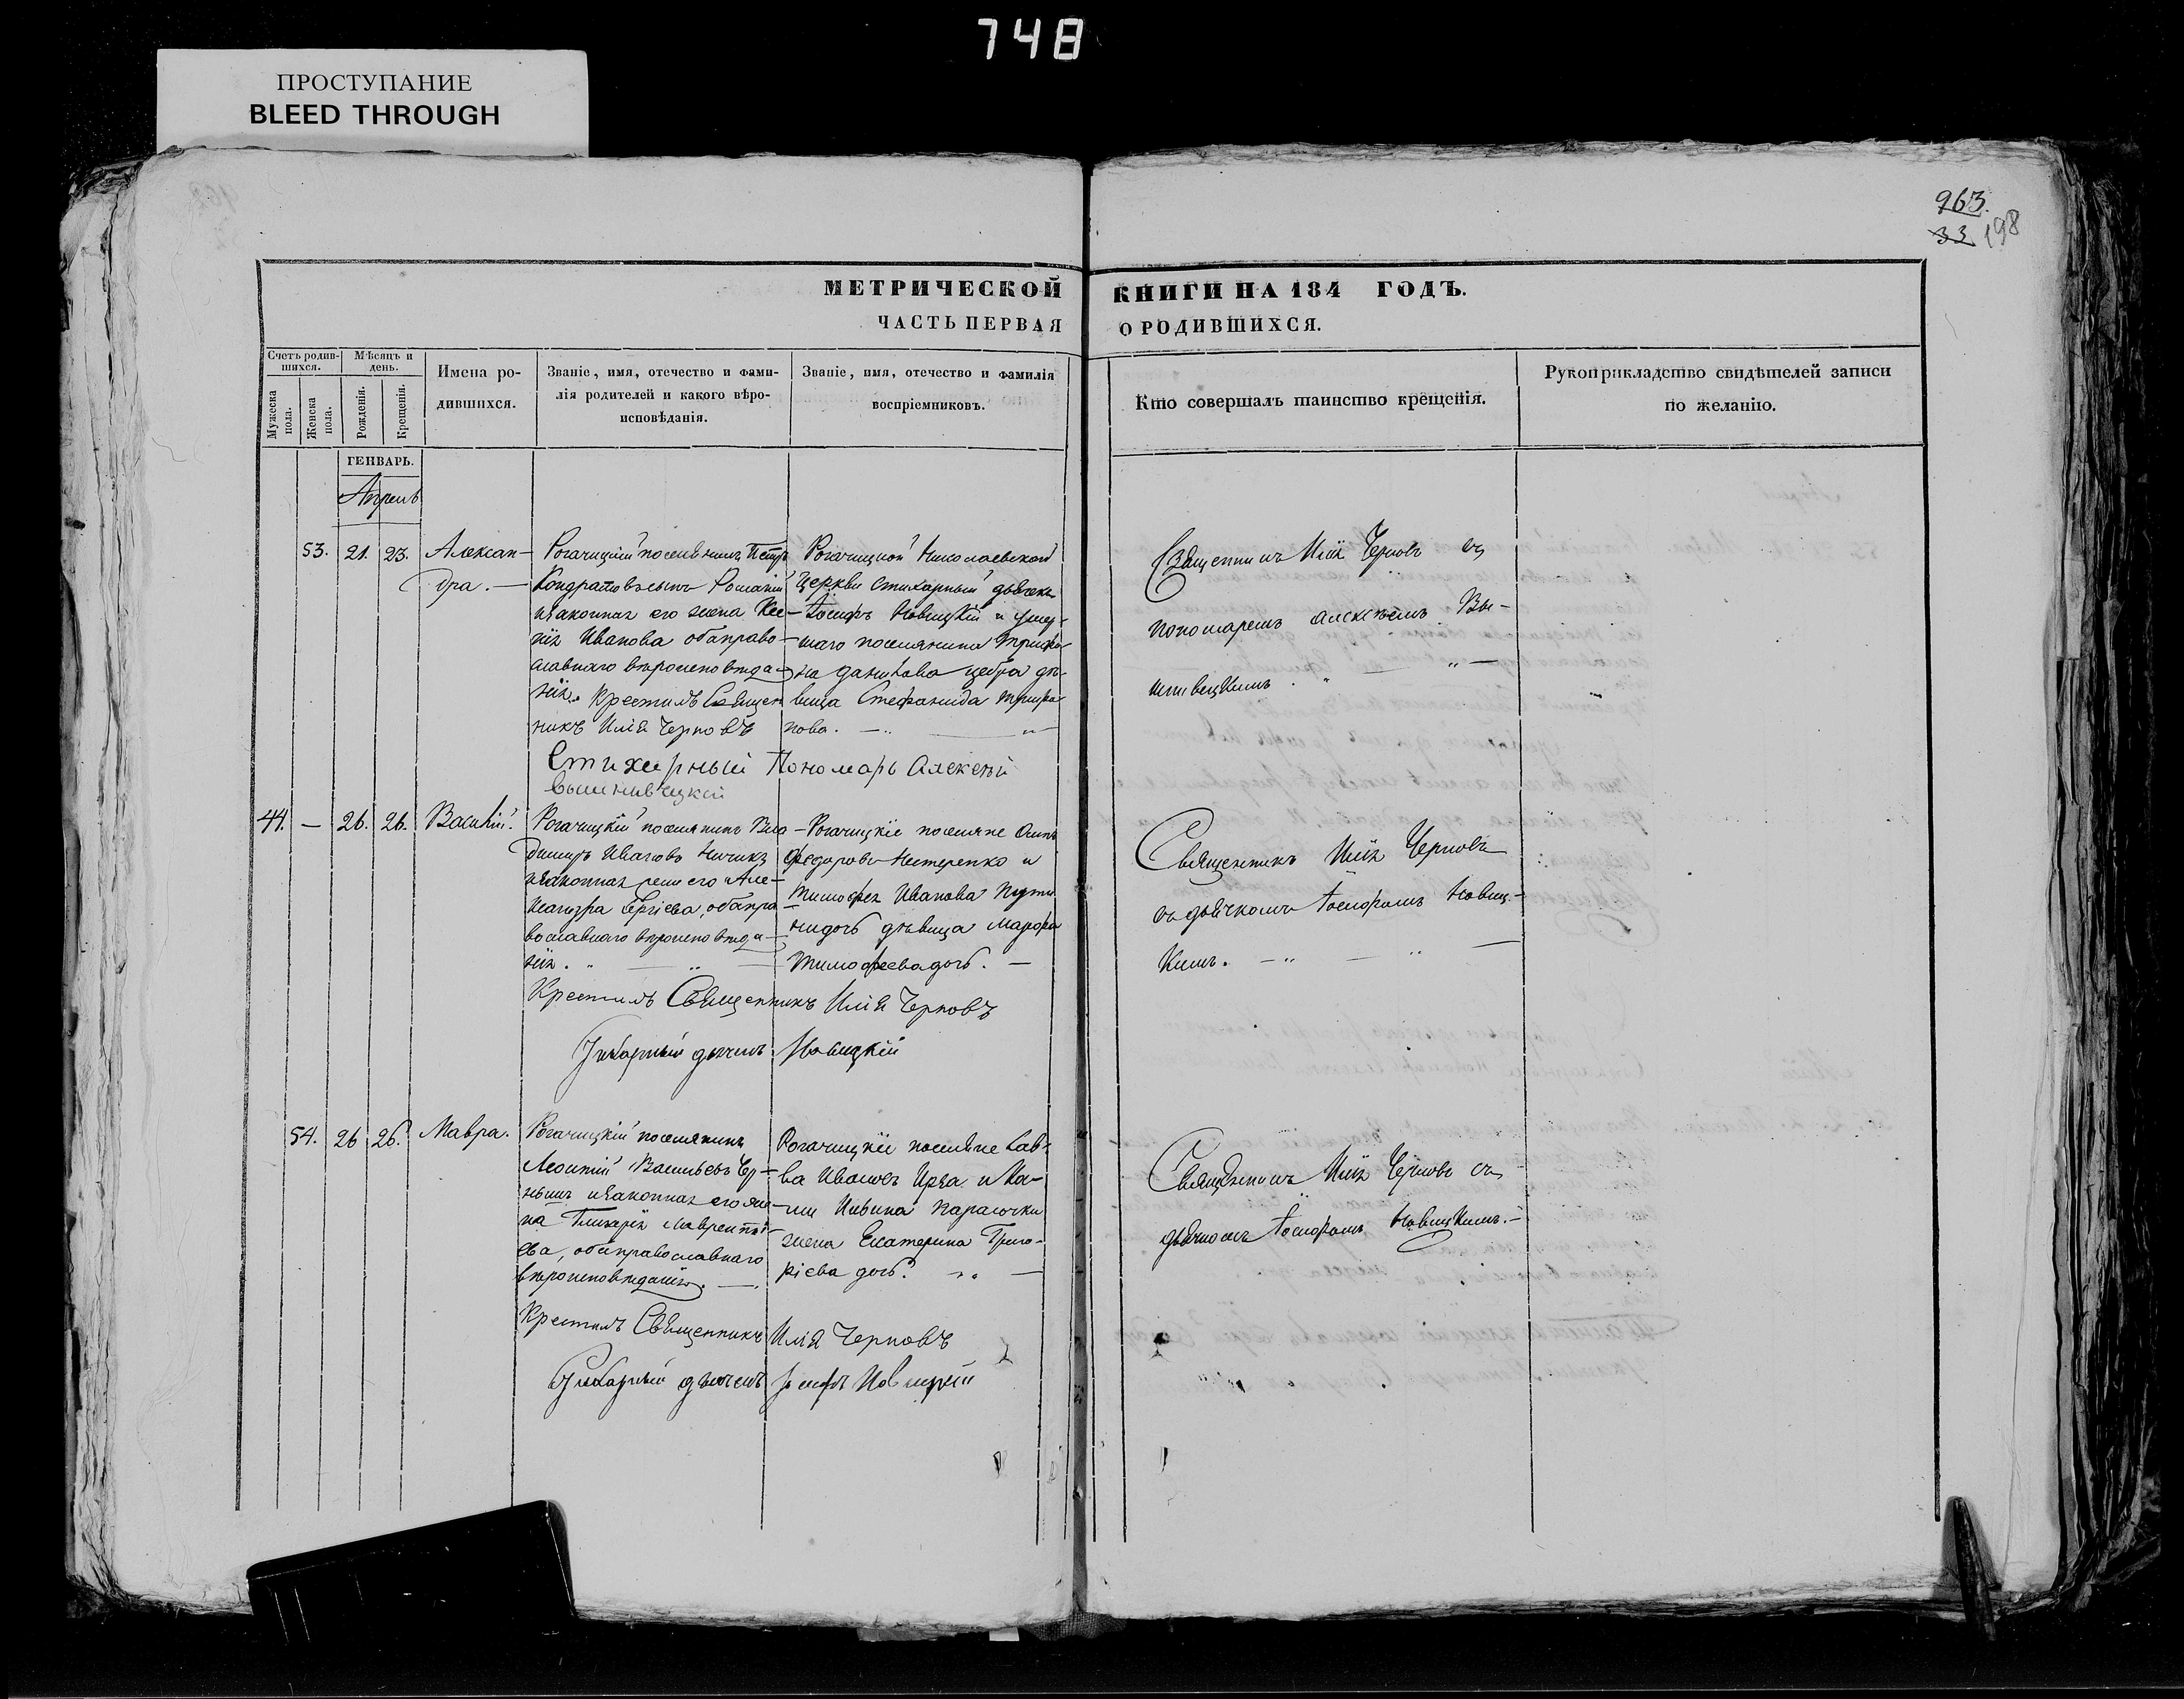 748
ПРОСТУПАНИЕ
BLEED THROUGH
963.
33 198
МЕТРИЧЕСКОЙ КНИГИ НА 184 ГОДЪ.
ЧАСТЬ ПЕРВАЯ О РОДИВШИХСЯ.
Счетъ родив-
шихся.
Мужеска пола.
Женска пола.
Мѣсяцъ и
день.
Рожденія.
Крещенія.
Имена ро-
дившихся.
Званіе, имя, отечество и фами-
лія родителей и какого вѣро-
исповѣданія.
Званіе, имя, отечество и фамилія
воспріемниковъ.
Кто совершалъ таинство крещенія.
Рукоприкладство свидѣтелей записи
по желанію.
ГЕНВАРЬ.
Апрель
53. 21. 23. Алексан-
дра. —
Рогачицкій поселянинъ Петръ
Кондратовъ сынъ
и законная его жена Ксе-
нія Иванова оба право-
славнаго вѣроисповѣда-
нія. Крестилъ Священ
никъ Илія Черновъ
Стихарный Пономарь Алексѣй
Вышнивецкій
Рогачицкой Николаевской
Церкви стихарный дьячекъ
Іосифъ Новицкій и умер-
шаго поселянина Трифо-
на Данилова дѣ-
вица Стефанида Трифо-
нова. —
Священникъ Илія Черновъ съ
пономаремъ Алексѣемъ Вы-
шнивецкимъ.
44. — 26. 26. Василій.
Рогачицкій поселянинъ Вла-
димиръ Ивановъ
и законная жена его Але-
ксандра Сергіева, оба пра-
вославнаго вѣроисповѣда-
нія.
Крестилъ Священникъ Илія Черновъ
Стихарный дьячекъ Новицкій
Рогачицкіе поселяне Осипъ
Федоровъ Нестеренко и
Тимофея Иванова
дѣвица Марфа
Тимофеева дочь. —
Священникъ Илія Черновъ
съ дьячкомъ Іосифомъ Новиц-
кимъ. —
54. 26 26. Мавра.
Рогачицкій поселянинъ
Леонтій Васильевъ Чер-
нышъ и законная его же-
на Гликерія Лаврентьї-
ева, оба православнаго
вѣроисповѣданія. —
Крестилъ Священникъ Илія Черновъ
Стихарный дьячекъ Іосифъ Новицкій
Рогачицкіе поселяне Сав-
ва Ивановъ
жена Екатерина Григо-
рієва дочь. —
Священникъ Илія Черновъ съ
дьячкомъ Іосифомъ Новицкимъ. —